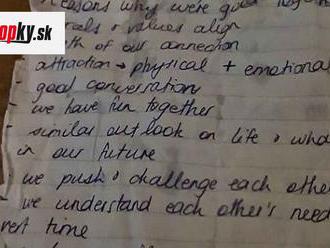 topky.sk
reasons why we're good together
morals & values align
of our connection
attraction → physical + emotional
good conversation
- we have fun together
- similar outlook on life &
in our future
- we push & challenge each other
- we understand each other's need
time